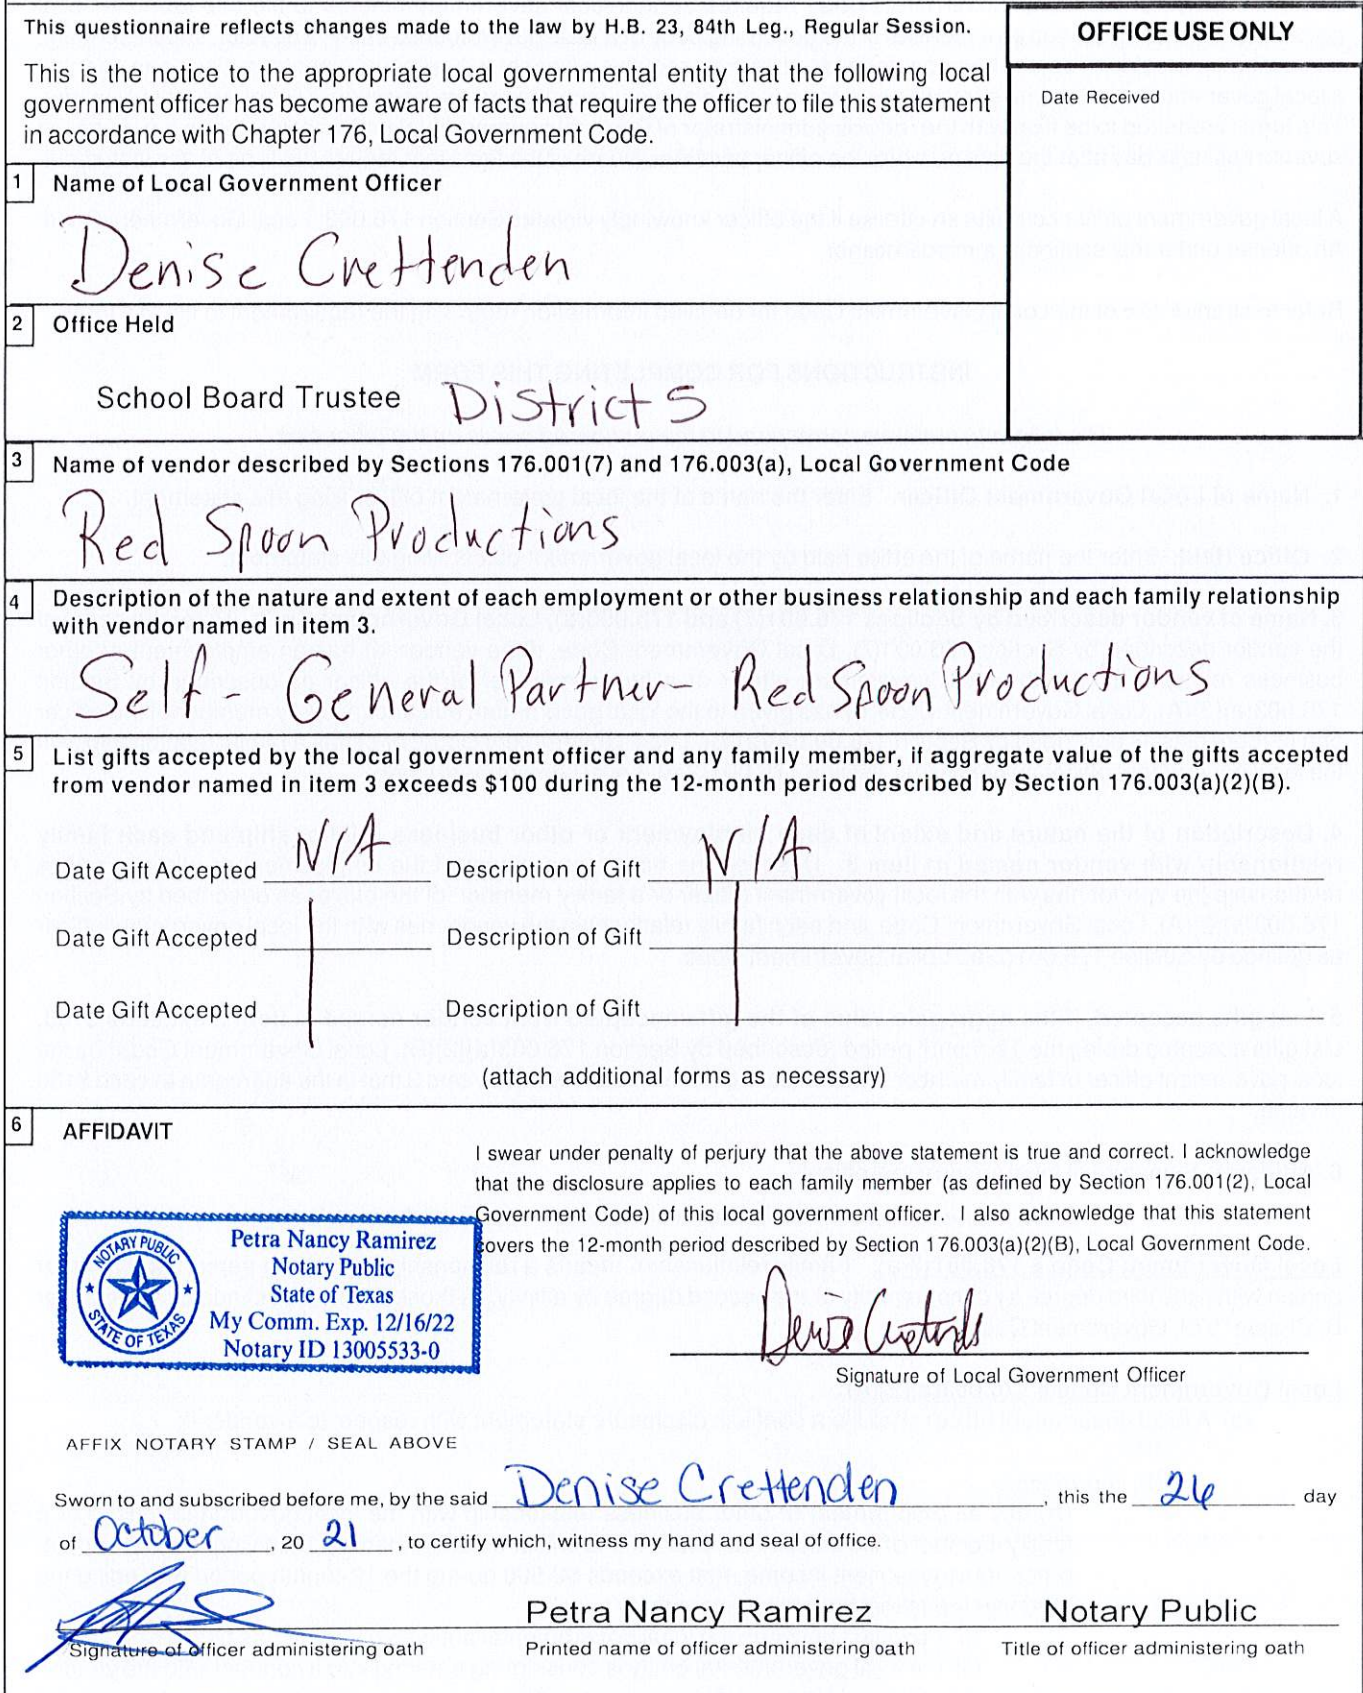 This questionnaire reflects changes made to the law by H.B. 23, 84th Leg., Regular Session.
OFFICE USE ONLY
This is the notice to the appropriate local governmental entity that the following local
government officer has become aware of facts that require the officer to file this statement
in accordance with Chapter 176, Local Government Code.
Date Received
1 Name of Local Government Officer
Denise Crettenden
2 Office Held
School Board Trustee District 5
3 Name of vendor described by Sections 176.001(7) and 176.003(a), Local Government Code
Red Spoon Productions
4 Description of the nature and extent of each employment or other business relationship and each family relationship
with vendor named in item 3.
Self - General Partner - Red Spoon Productions
5 List gifts accepted by the local government officer and any family member, if aggregate value of the gifts accepted
from vendor named in item 3 exceeds $100 during the 12-month period described by Section 176.003(a)(2)(B).
Date Gift Accepted N/A Description of Gift N/A
Date Gift Accepted Description of Gift
Date Gift Accepted Description of Gift
(attach additional forms as necessary)
6 AFFIDAVIT
I swear under penalty of perjury that the above statement is true and correct. I acknowledge
that the disclosure applies to each family member (as defined by Section 176.001(2), Local
Government Code) of this local government officer. I also acknowledge that this statement
covers the 12-month period described by Section 176.003(a)(2)(B), Local Government Code.
NOTARY PUBLIC
STATE OF TEXAS
Petra Nancy Ramirez
Notary Public
State of Texas
My Comm. Exp. 12/16/22
Notary ID 13005533-0
Signature of Local Government Officer
AFFIX NOTARY STAMP / SEAL ABOVE
Sworn to and subscribed before me, by the said Denise Crettenden, this the 26 day
of October, 20 21, to certify which, witness my hand and seal of office.
Petra Nancy Ramirez
Notary Public
Signature of officer administering oath
Printed name of officer administering oath
Title of officer administering oath